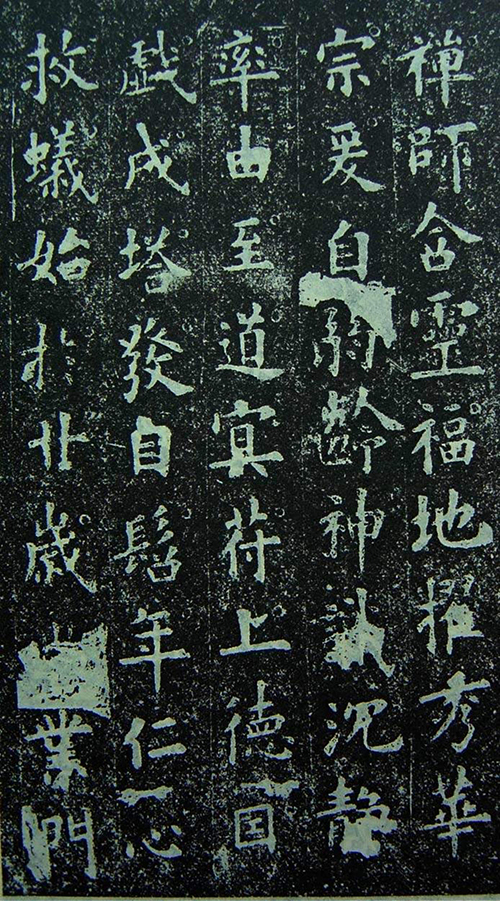 禪師含靈福地擢秀華
宗爰自弱齡神沉静
率由至道冥符上德因
戲成塔發自髫年仁心
救蟻始於卝歲業門